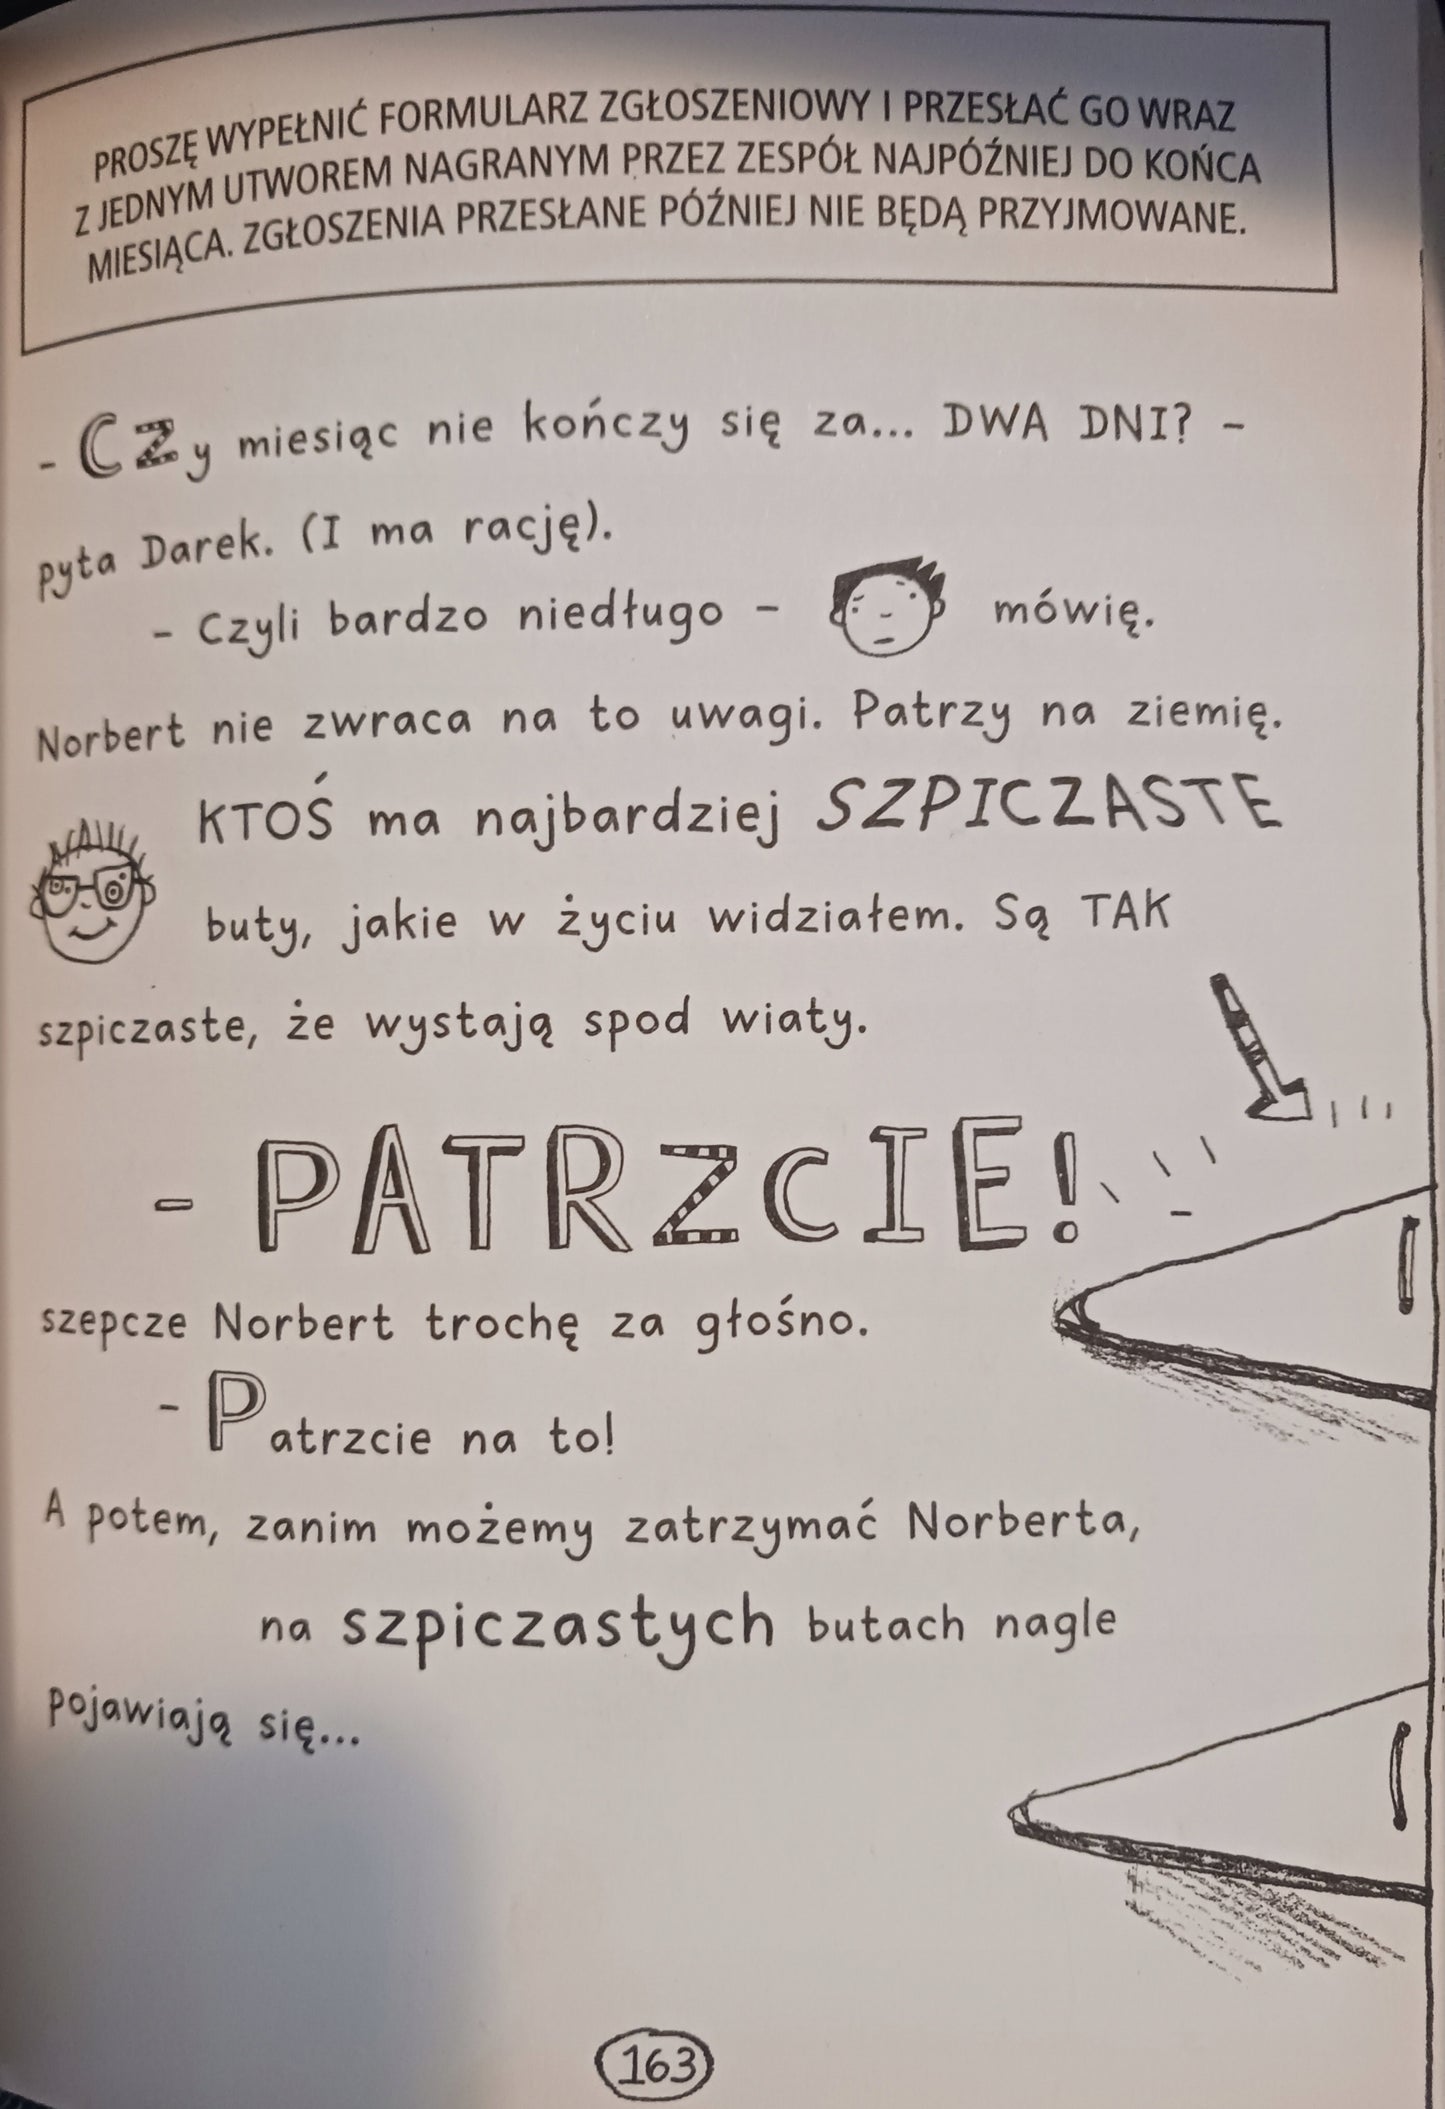 PROSZĘ WYPEŁNIĆ FORMULARZ ZGŁOSZENIOWY I PRZESŁAĆ GO WRAZ
Z JEDNYM UTWOREM NAGRANYM PRZEZ ZESPÓŁ NAJPÓŹNIEJ DO KOŃCA
MIESIĄCA. ZGŁOSZENIA PRZESŁANE PÓŹNIEJ NIE BĘDĄ PRZYJMOWANE.
- CZy miesiąc nie kończy się za... DWA DNI? -
pyta Darek. (I ma rację).
- Czyli bardzo niedługo - mówię.
Norbert nie zwraca na to uwagi. Patrzy na ziemię.
KTOŚ ma najbardziej SZPICZASTE
buty, jakie w życiu widziałem. Są TAK
szpiczaste, że wystają spod wiaty.
- PATRZCIE!
szepcze Norbert trochę za głośno.
- Patrzcie na to!
A potem, zanim możemy zatrzymać Norberta,
na szpiczastych butach nagle
pojawiają się...
163